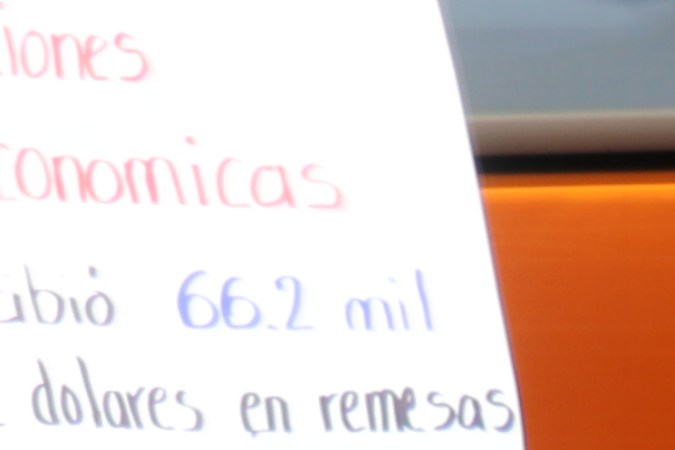 iones
conomicas
ibió 66.2 mil
dolares en remesas